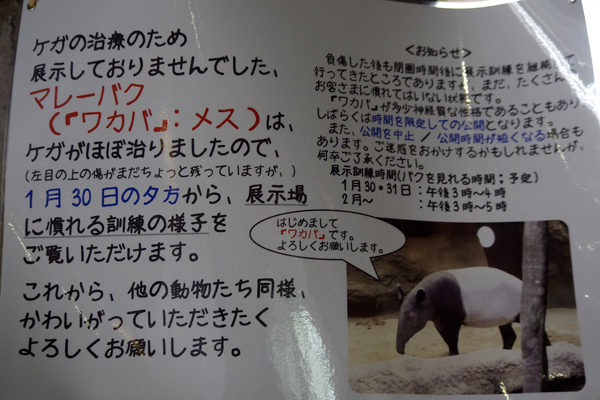 ケガの治療のため
展示しておりませんでした、
マレーバク
（『ワカバ』：メス）は、
ケガがほぼ治りましたので、
（左目の上の傷がまだちょっと残っていますが、）
1月30日の夕方から、展示場
に慣れる訓練の様子を
ご覧いただけます。
これから、他の動物たち同様、
かわいがっていただきたく
よろしくお願いします。
＜お知らせ＞
負傷した後も閉園時間後に展示訓練を継続して
行ってきたところでありますが、まだ、たくさん
お客さまに慣れてはいない状態です。
『ワカバ』が多少神経質な性格であることもあり
しばらくは時間を限定しての公開となります。
また、公開を中止／公開時間が短くなる場合も
あります。ご迷惑をおかけするかもしれませんが、
何卒ご了承ください。
展示訓練時間（バクを見れる時間：予定）
1月30・31日：午後3時～4時
2月～：午後3時～5時
はじめまして
『ワカバ』です。
よろしくお願いします。